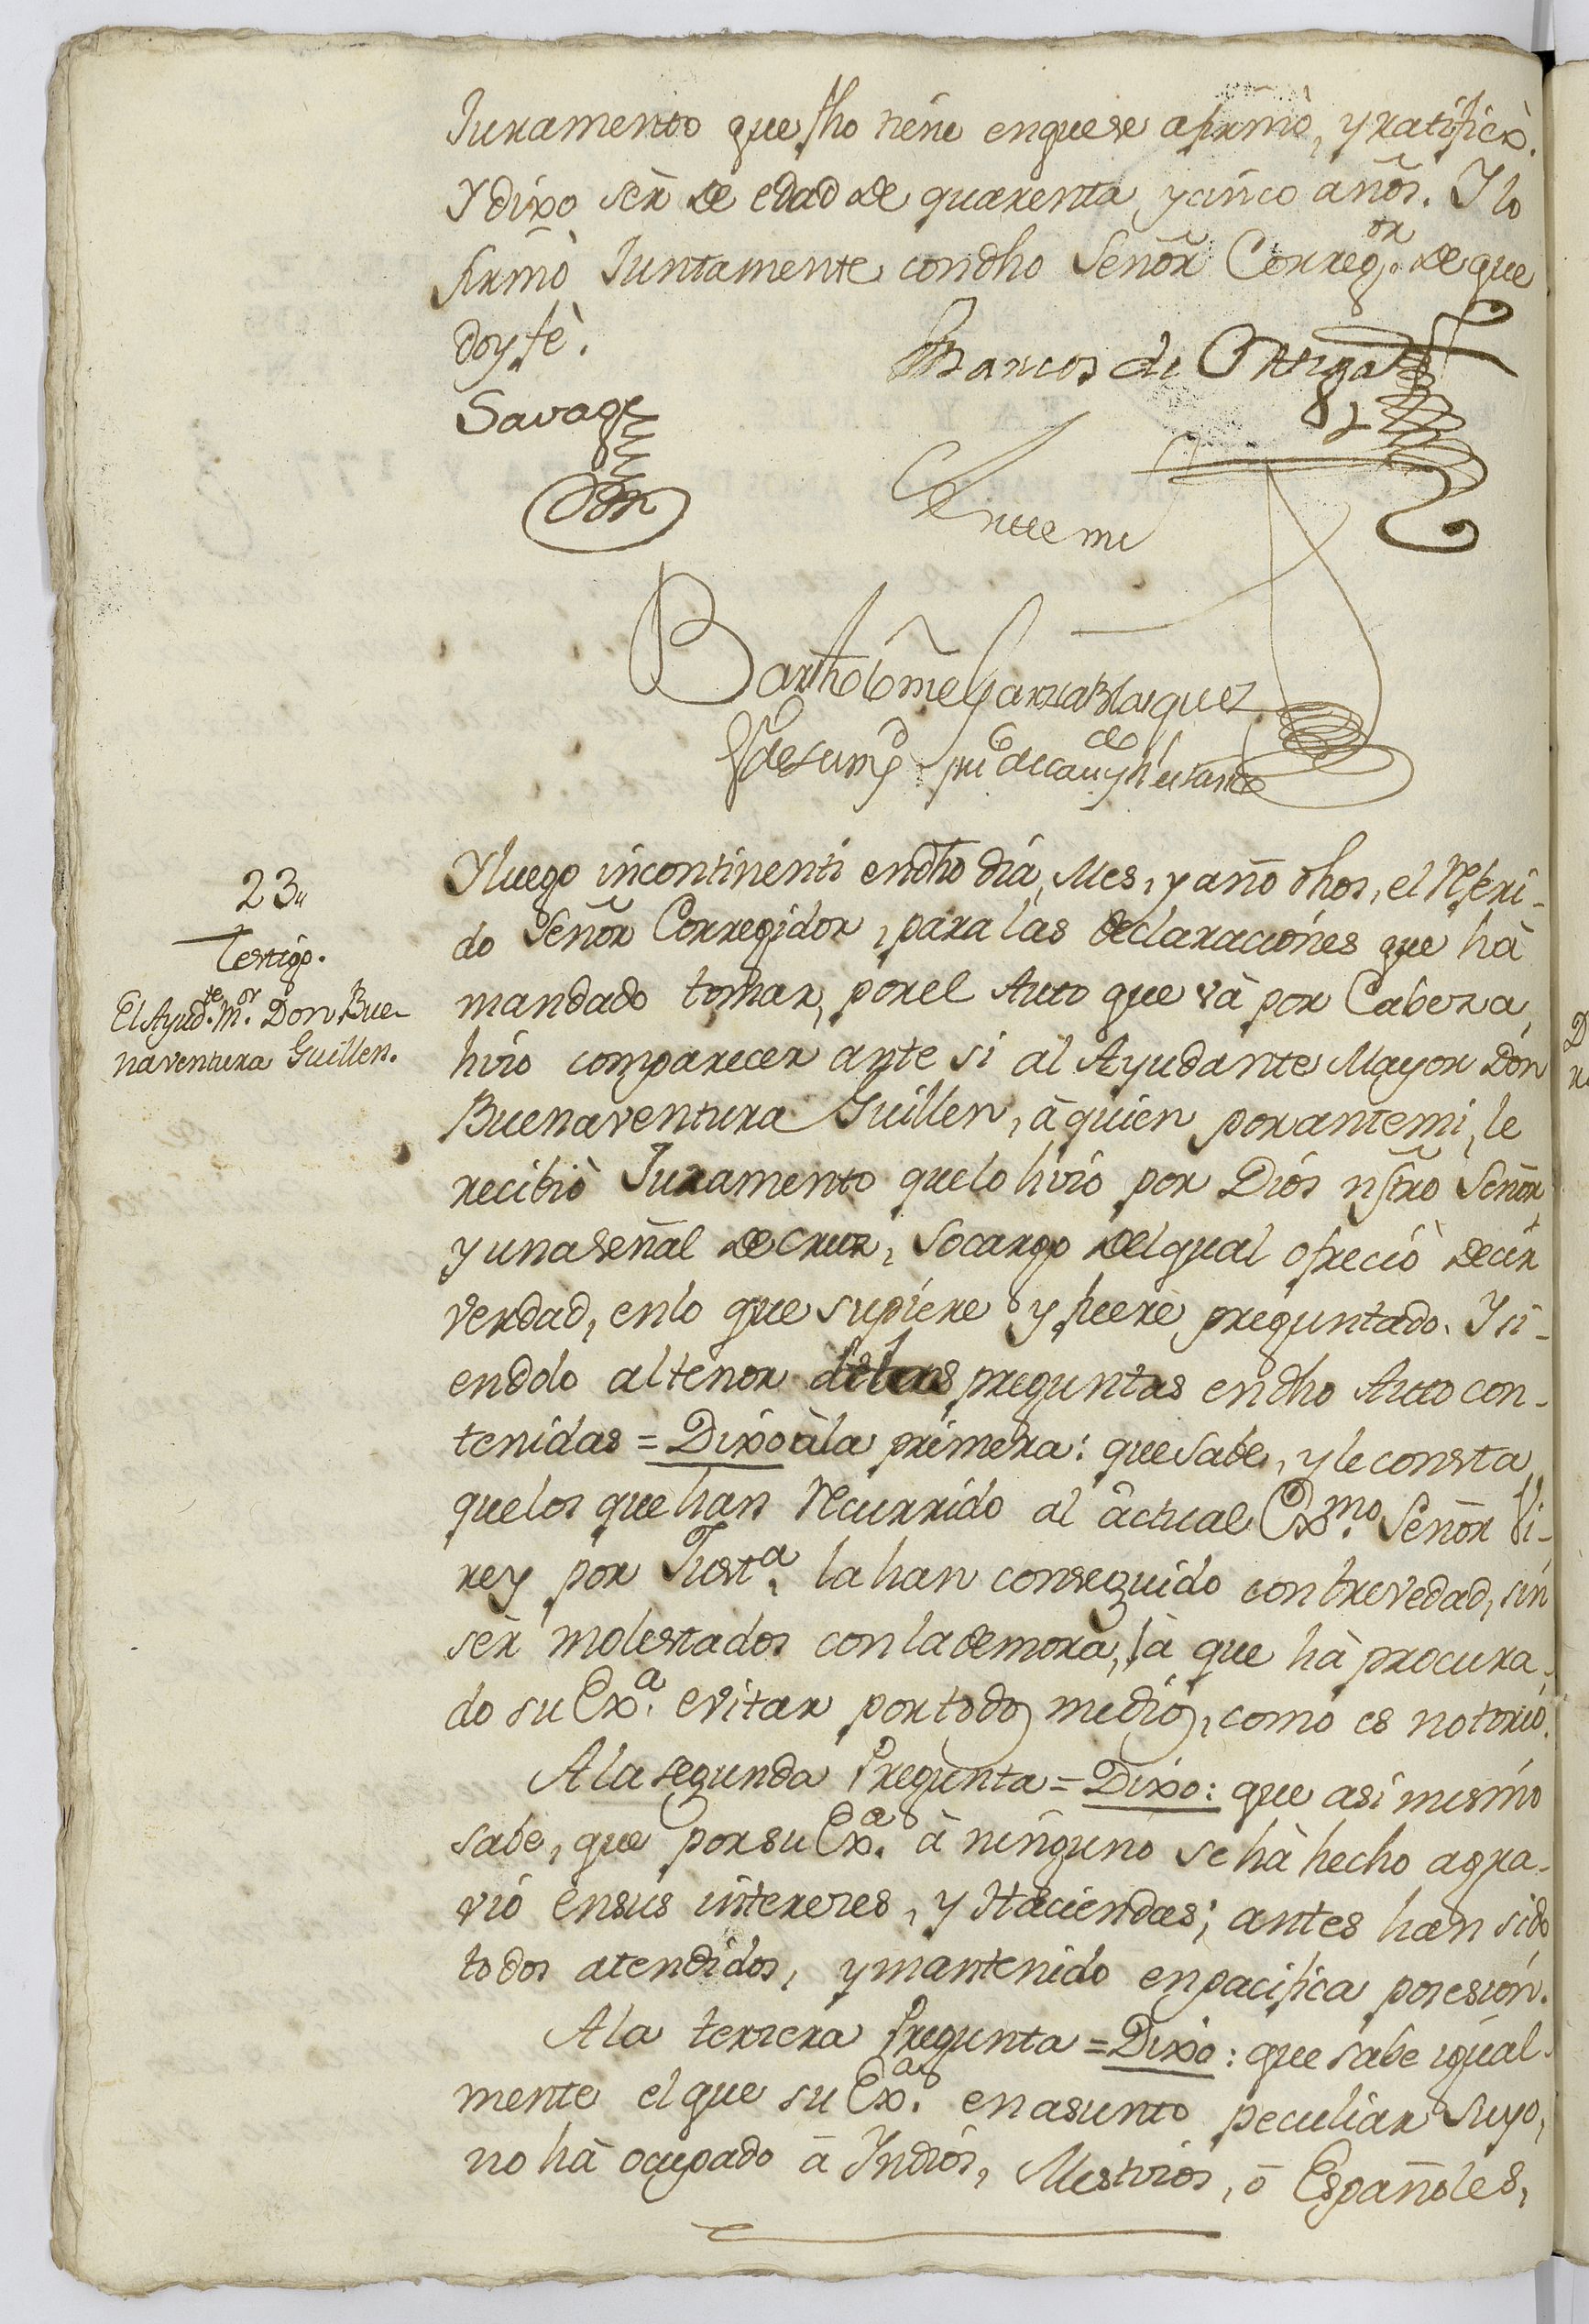 Juramento que fho tiene enquese afirmò, y ratificò.
Y dixo sèr de edad de quarenta, y cinco años. Y lo
firmò Juntamente condho Señor Correg.or de que
doy fè.
Marcos de Ortiga
Savage
Ante mi
Bartholome Garzia Blasquez
23,,
Testigo.
El Ayud.te M.or Don Bue-
naventura Guillen.
Y luego incontinenti endho dia, Mes, y año dhos, el Referi-
do Señor Corregidor, para las declaraciónes que hà
mandado tomar, por el Auto que và por Cabeza,
hizo comparecer ante si al Ayudante Mayor Don
Buenaventura Guillen, à quien por antemi, le
recibiò Juramento quelo hizo por Diós nstro Señor,
y una señal de cruz, socargo delqual ofreciò decir
verdad, enlo que supiere y fuere preguntado. Y si-
endolo altenor delas preguntas endho Auto con-
tenidas = Dixo àla primera: que sabe, y le consta
quelos que han Recurrido al àctual Ex.mo Señor Vi-
rey por Just.a, la han conseguido con brevedad, sin
sèr molestados con la demora, là que hà procura-
do su Ex.a evitar por todos medios, como es notorio.
A la segunda Pregunta = Dixo: que asi mesmo
sabe, que por su Ex.a à ninguno se hà hecho agra-
vio ensus intereses, y Haciendas; antes han sido
todos atendidos, y mantenido en pacifica posesión.
A la terzera Pregunta = Dixo: que sabe igual-
mente el que su Ex.a en asunto peculiar suyo,
no hà ocupado à Yndiós, Mestizos, ò Españoles,